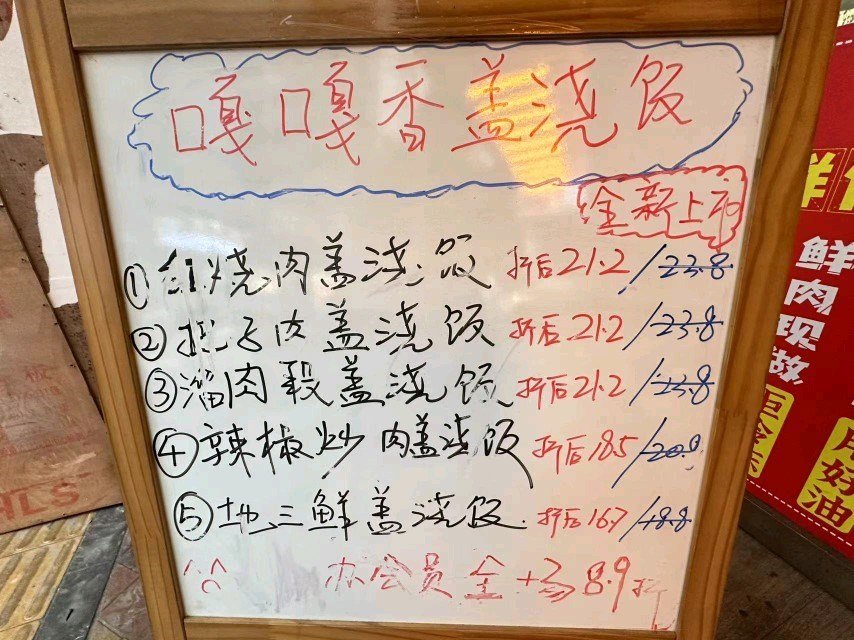 嘎嘎香盖浇饭
全新上市
①红烧肉盖浇饭 折后21.2/23.8
②把子肉盖浇饭 折后21.2/23.8
③溜肉段盖浇饭 折后21.2/23.8
④辣椒炒肉盖浇饭 折后18.5/20.8
⑤地三鲜盖浇饭 折后16.7/18.8
办会员全场8.9折
鲜肉现做
用好油